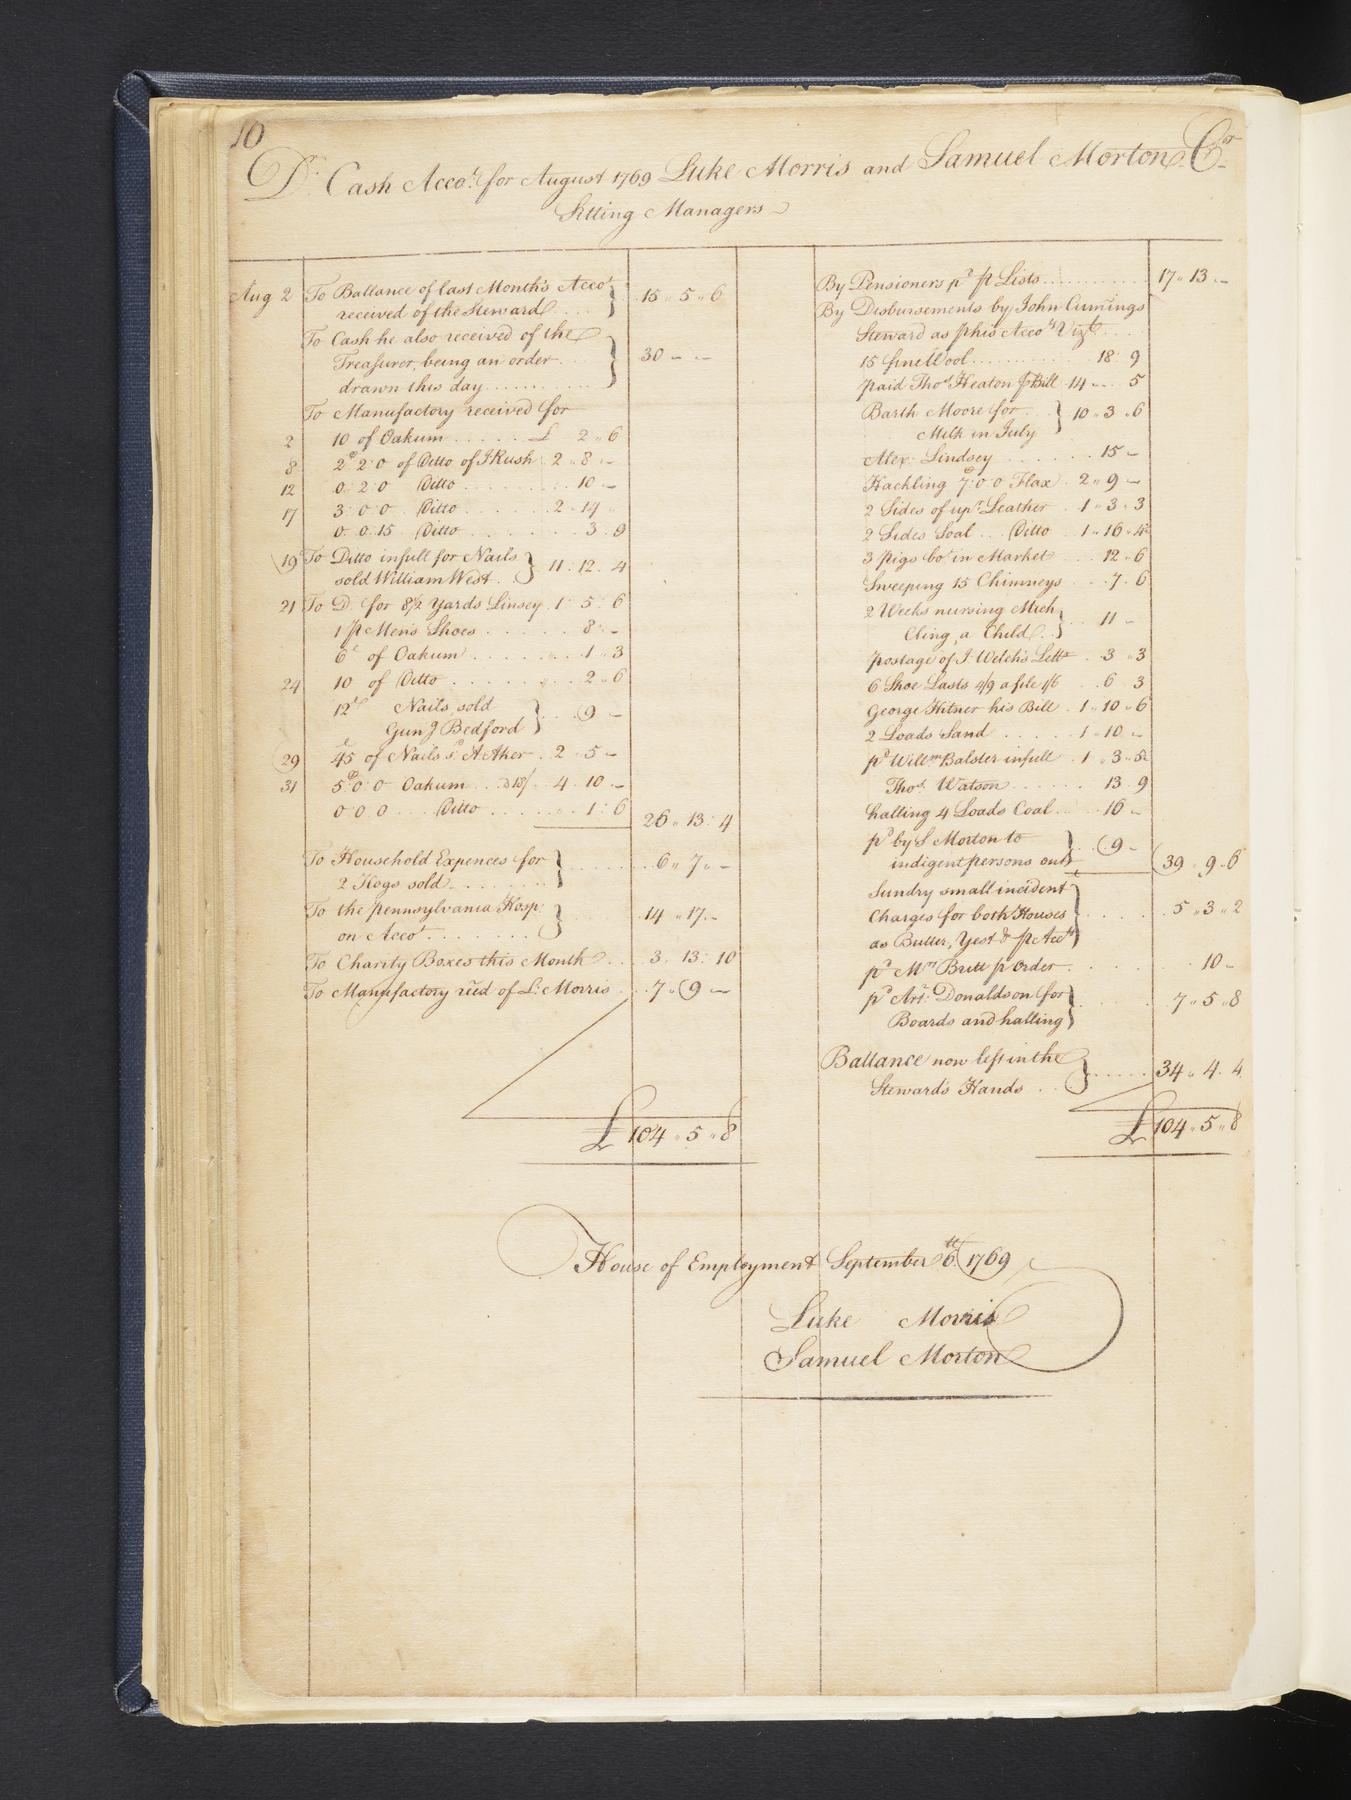 10
Dr. Cash Accot. for August 1769 Luke Morris and Samuel Morton Cr.
Sitting Managers
Aug 2 To Ballance of last Month's Accot. received of the Steward 15 " 5 " 6
To Cash he also received of the
Treasurer, being an order 30 - " -
drawn this day
To Manufactory received for
2 10 of Oakum £ 2 " 6
8 2 " 2 " 0 of Ditto of J Rush 2 " 8 " -
12 0 " 2 " 0 Ditto 10 -
17 3 " 0 " 0 Ditto 2 " 14 "
0 " 0 " 15 Ditto 3 " 9
19 To Ditto in full for Nails
sold William West 11 : 12 : 4
21 To Do. for 8½ Yards Linsey 1 : 5 : 6
1 pr Mens Shoes 8 " -
6 lb of Oakum 1 " 3
24 10 of Ditto 2 " 6
12 lb Nails sold
Gun J Bedford 9 -
29 45 of Nails sd. A Aker 2 " 5 -
31 5 " 0 " 0 Oakum a 18/ 4 " 10 -
0 0 0 Ditto 1 : 6
26 " 13 : 4
To Household Expences for
2 Hogs sold 6 " 7 " -
To the Pennsylvania Hosp:
on Accot. 14 " 17 " -
To Charity Boxes this Month 3 " 13 : 10
To Manufactory recd of L: Morris 7 " 9 -
£ 104 " 5 " 8
By Pensioners pd. p Lists 17 " 13 " -
By Disbursements by John Cumings
Steward as p his Accots. Vizt
15 fine Wool 18 : 9
paid Thos. Heaton p Bill 14 - - 5
Barth Moore for
Milk in July 10 " 3 " 6
Alex: Lindsey 15 -
Hackling 7 " 0 " 0 Flax 2 " 9 -
2 Sides of upr. Leather 1 " 3 " 3
2 Sides Soal Ditto 1 " 16 " 4½
3 pigs bot. in Market 12 " 6
Sweeping 15 Chimneys 7 " 6
2 Weeks nursing Mich
Cling, a Child 11 -
Postage of J Welch's Lettr 3 " 3
6 Shoe Lasts 4/9 a file 1/6 6 " 3
George Hitner his Bill 1 " 10 " 6
2 Loads Sand 1 " 10 -
pd. Willm. Balster in full 1 " 3 " 5½
Thos. Watson 13 " 9
halling 4 Loads Coal 16 -
pd. by S Morton to
indigent persons out 9 -
39 " 9 " 6
Sundry small incident
Charges for both Houses 5 " 3 " 2
as Butter, Yest & p Acct
pd. Mrs. Britt p Order 10 -
pd. Art: Donaldson for
Boards and halling 7 " 5 " 8
Ballance now left in the
Steward's Hands 34 " 4 " 4
£ 104 " 5 " 8
House of Employment September 6th. 1769
Luke Morris
Samuel Morton